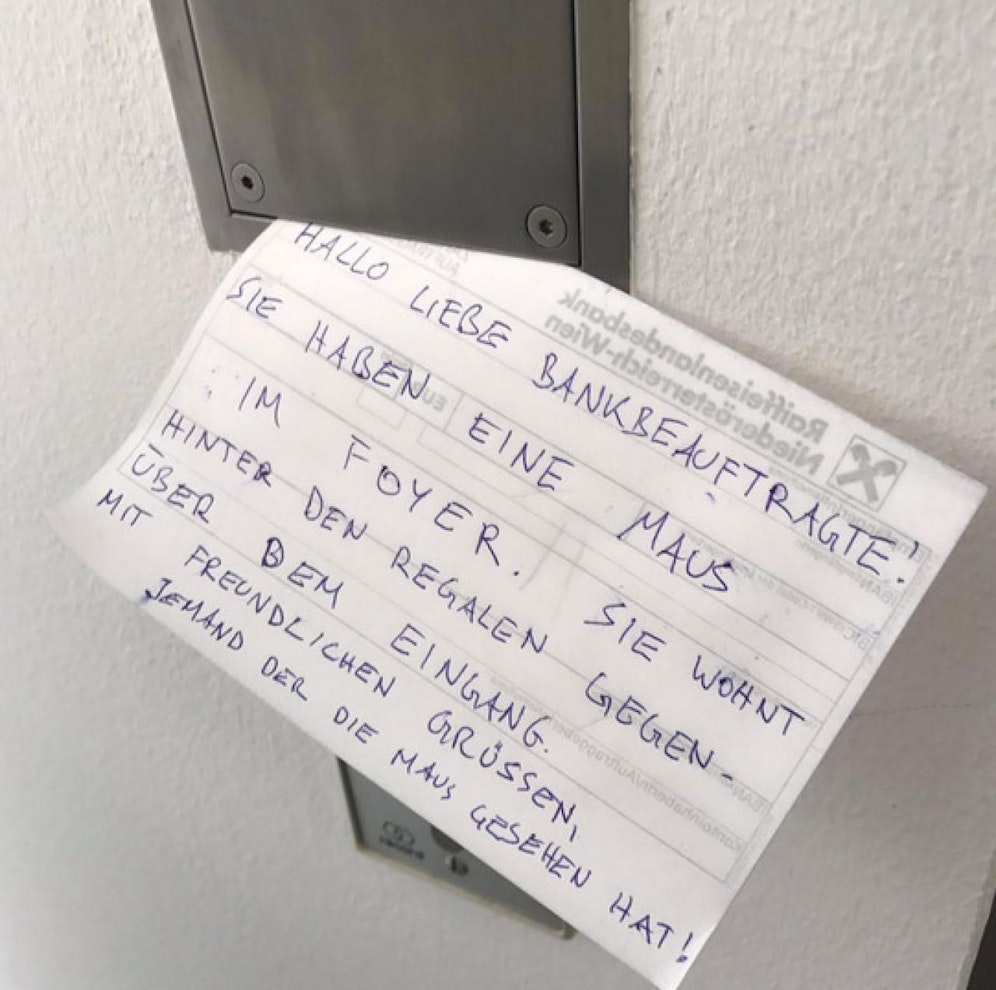 HALLO LIEBE BANKBEAUFTRAGTE!
SIE HABEN EINE MAUS
IM FOYER. SIE WOHNT
HINTER DEN REGALEN GEGEN-
ÜBER DEM EINGANG.
MIT FREUNDLICHEN GRÜSSEN,
JEMAND DER DIE MAUS GESEHEN HAT!
Raiffeisenlandesbank
Niederösterreich-Wien
EUR